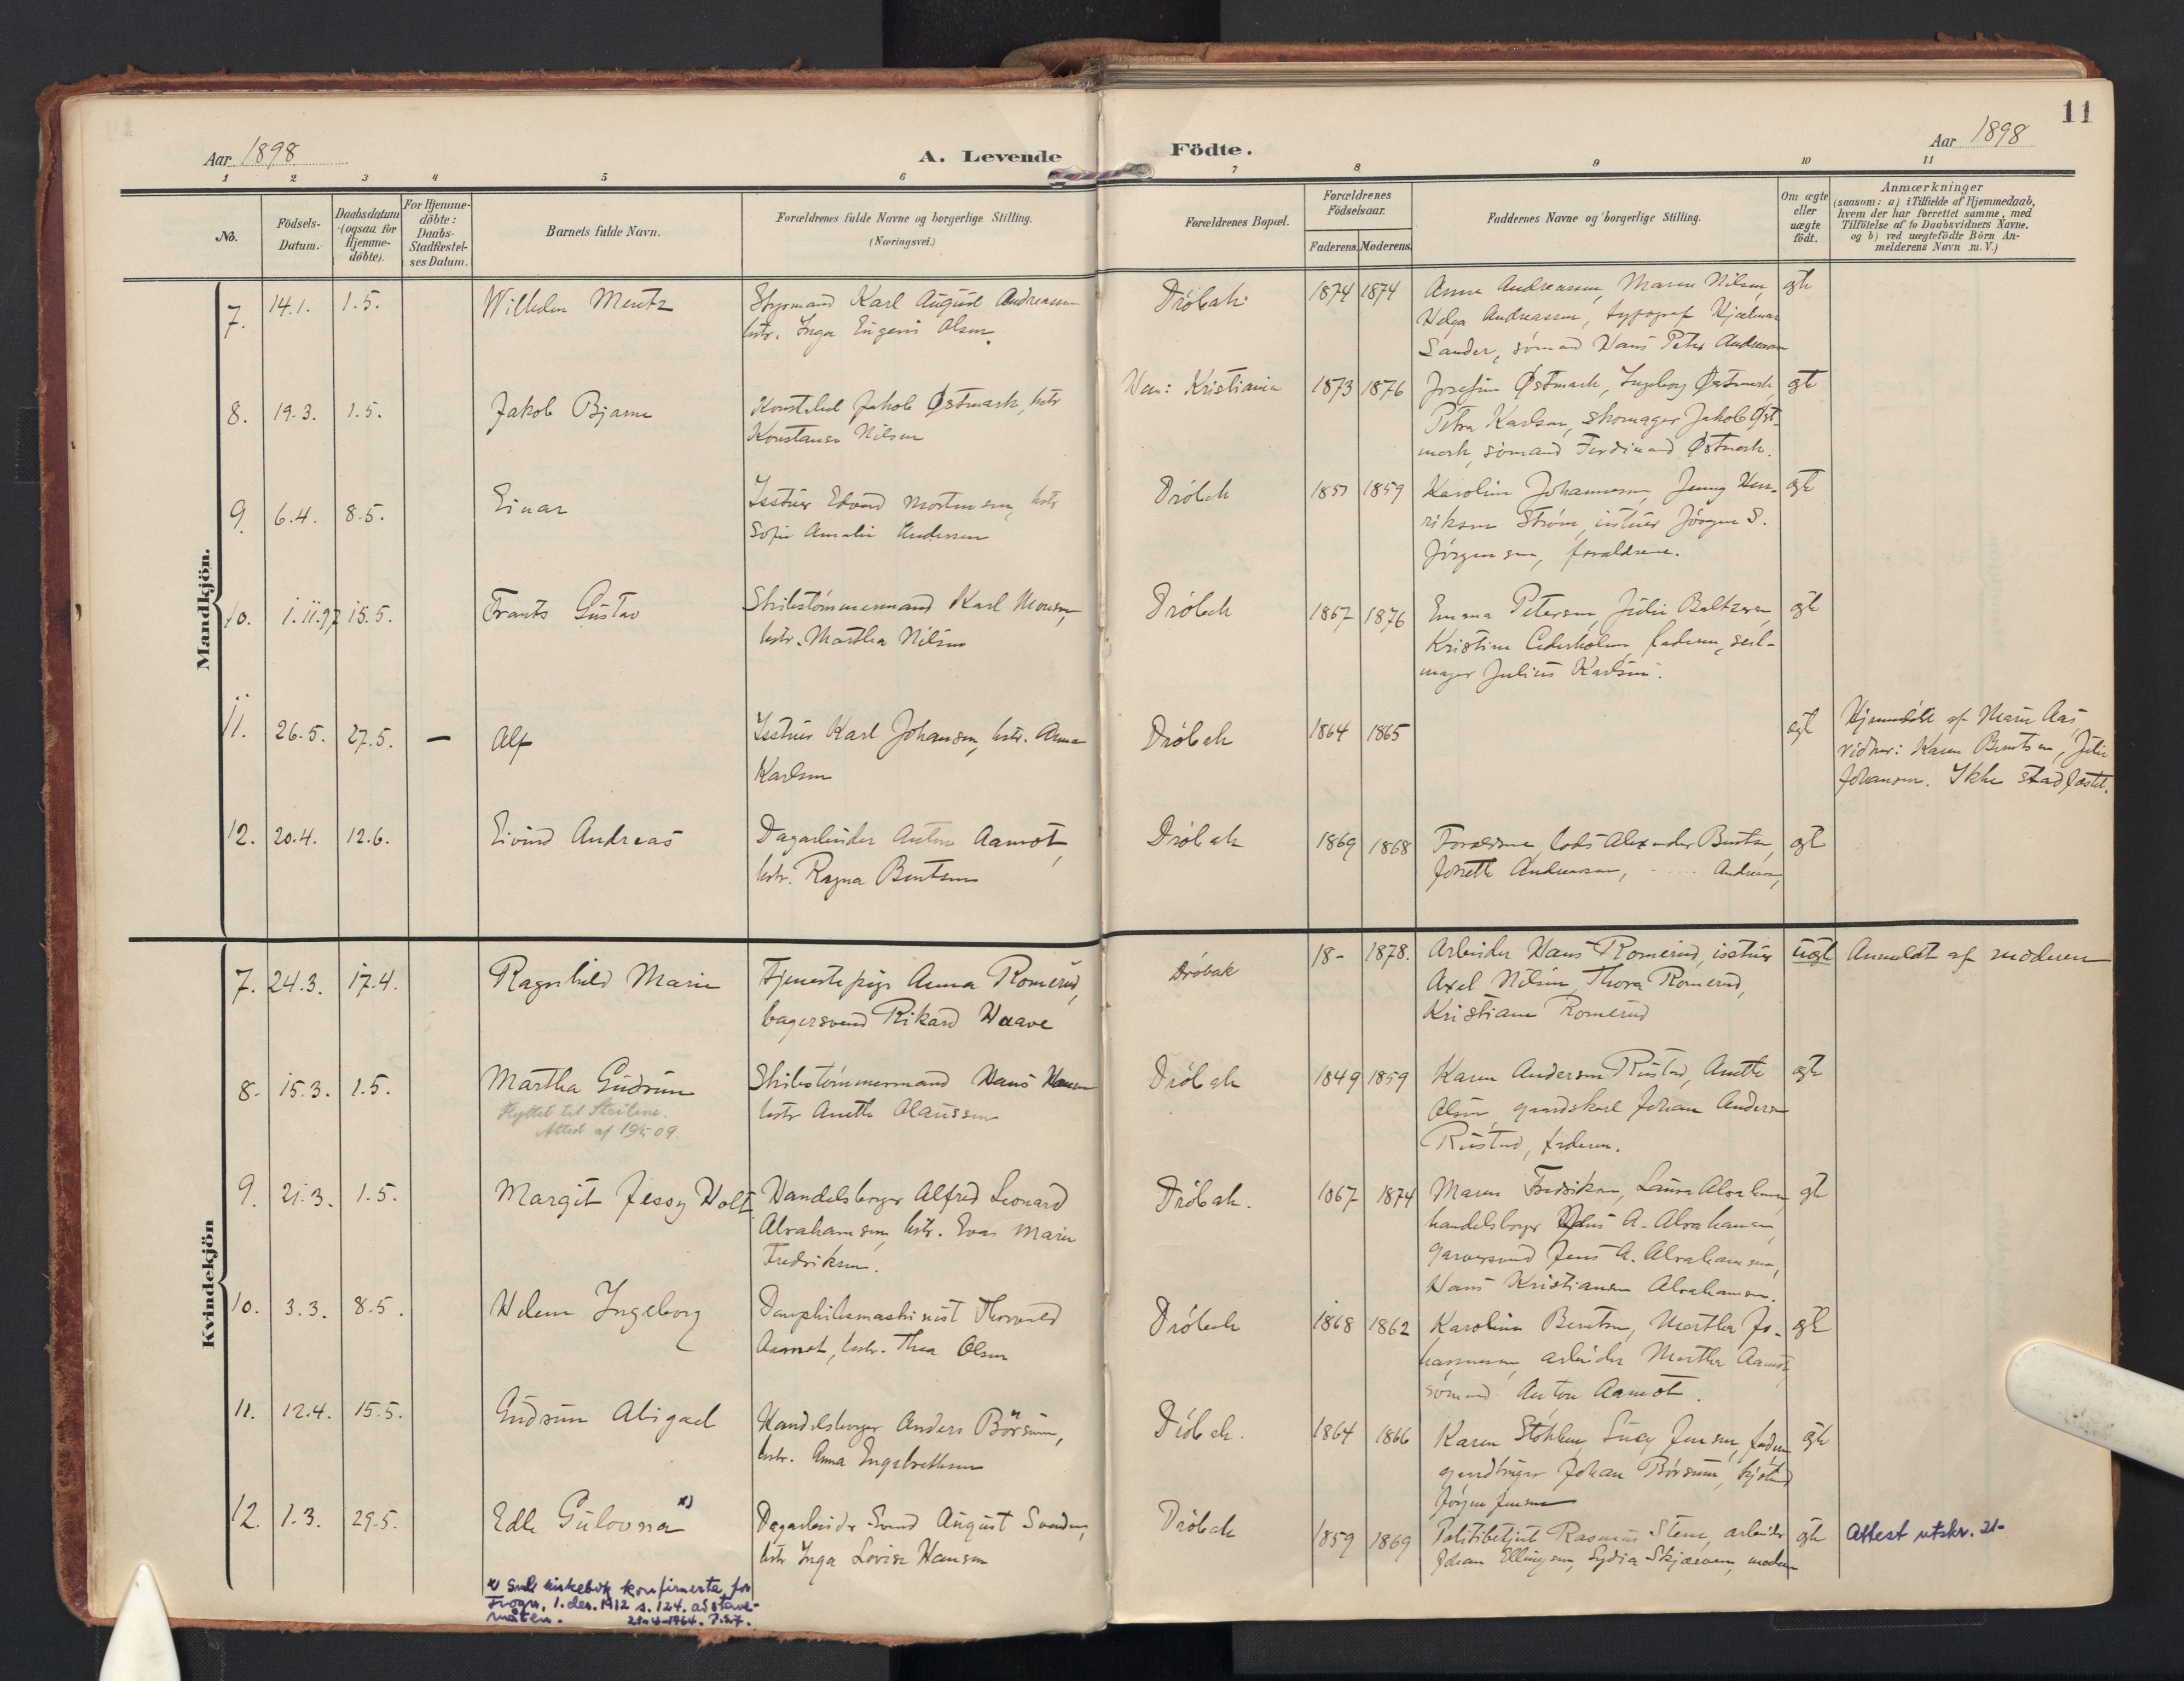 11
Aar 1898
A. Levende Födte.
Aar 1898
1 2 3 4 5 6 7 8 9 10 11
No.
Födsels-Datum.
Daabsdatum (ogsaa for Hjemme-döbte).
For Hjemme-döbte: Daabs-Stadfæstel-ses Datum.
Barnets fulde Navn.
Forældrenes fulde Navne og borgerlige Stilling.
(Næringsvei.)
Forældrenes Bopæl.
Forældrenes Födselsaar.
Faderens. Moderens.
Faddernes Navne og borgerlige Stilling.
Om ægte eller uægte födt.
Anmærkninger
(saasom: a) i Tilfælde af Hjemmedaab,
hvem der har forrettet samme, med
Tilföielse af to Daabsvidners Navne,
og b) ved uægtefödte Börn An-
melderens Navn m. V.)
Mandkjön.
7. 14.1. 1.5. Wilhelm Mentz Styrmand Karl August Andreassen Dröbak 1874 1874 Anna Andreassen, Maren Nilsen, gte
hstr. Inga Eugenie Olsen. Helga Andreassen, typograf Hjalmar
Sander, sömand Hans Peter Andreassen
8. 19.3. 1.5. Jakob Bjarne Konstabel Jakob Østmark, hstr Kristiania 1873 1876 Josefine Østmark, Ingeborg Østmark, gte
Konstanse Nilsen Petra Karlsen, skomager Jakob Øst-
mark, sömand Ferdinand Østmark.
9. 6.4. 8.5. Einar Isstuer Edvard Mortensen, hstr Dröbak 1859 Karoline Johannesen, Jenny Hen-
Sofie Amalie Andersen riksen Ström, istuer Jörgen S.
Jörgensen, forældrene.
10. 1.11.97 15.5. Frants Gustav Skibstömmermand Karl Monsen, Dröbak 1867 1876 Emma Petersen, Julie Baltzersen,
hstr. Martha Nilsen Kristine Cederholm, faderen, seil-
mager Julius Karlsen.
11. 26.5. 27.5. — Alf Isstuer Karl Johansen, hstr. Anna Dröbak 1864 1865 Hjemmedöbt af Marie Aas,
Karlsen vidner: Karen Berntsen, Julie
Johansen. Ikke stadfæstet.
12. 20.4. 12.6. Eivind Andreas Dagarbeider Anton Aamot, Dröbak 1869 1868 Forældrene, lods Alexander Berntsen,
hstr. Ragna Berntsen Josette Andreassen, Andreassen,
Kvindekjön
7. 24.3. 17.4. Ragnhild Marie Tjenestepige Anna Romerud, Dröbak 18- 1878. Arbeider Hans Romerud, isstuer uægt Anmeldt af moderen
bagersvend Rikard Haave Axel Nilsen, Thora Romerud,
Kristiane Romerud
8. 15.3. 1.5. Martha Gudrun Skibstömmermand Hans Hansen Dröbak 1849 1859 Karen Andersen Rustad, Anette
Flyttet til Steilene. hstr Anette Olaussen Olsen, gaardskarl Johan Andersen
Attest af 19/5 09. Rustad, faderen.
9. 21.3. 1.5. Margit Jessy Holt Handelsborger Alfred Leonard Dröbak. 1867 1874 Maren Fredriksen, Laura Abrahamsen,
Abrahamsen, hstr. Eva Marie handelsborger A. Abrahamsen,
Fredriksen. garversvend Jens A. Abrahamsen,
Hans Kristiansen Abrahamsen.
10. 3.3. 8.5. Helene Ingeborg Dampskibsmaskinist Thorvald Dröbak 1868 1862 Karoline Berntsen, Martha Jo-
Aamot, hstr. Thea Olsen hannesen, arbeider Aamot,
sömand Anton Aamot.
11. 12.4. 15.5. Gudrun Abigael Handelsborger Anders Börsum, Dröbak. 1864 1866 Karen Stöhlen, Lucy Jensen,
hstr. Anna Engebrethsen Johan Börsum,
Jörgen Jensen
12. 1.3. 29.5. Edle Gulovna x) Dagarbeider Svend August Svendsen, Dröbak 1859 1869 Politibetjent Rasmus Stene, arbeider Attest utskr. 21-
hstr Inga Lovise Hansen Johan Ellingsen, Lydia Skjæveren, moderen
x) Smlt kirkebok konfirmerte for
Frogn, 1. des. 1912 s. 124. ad stave-
måten. 21-4-1964.